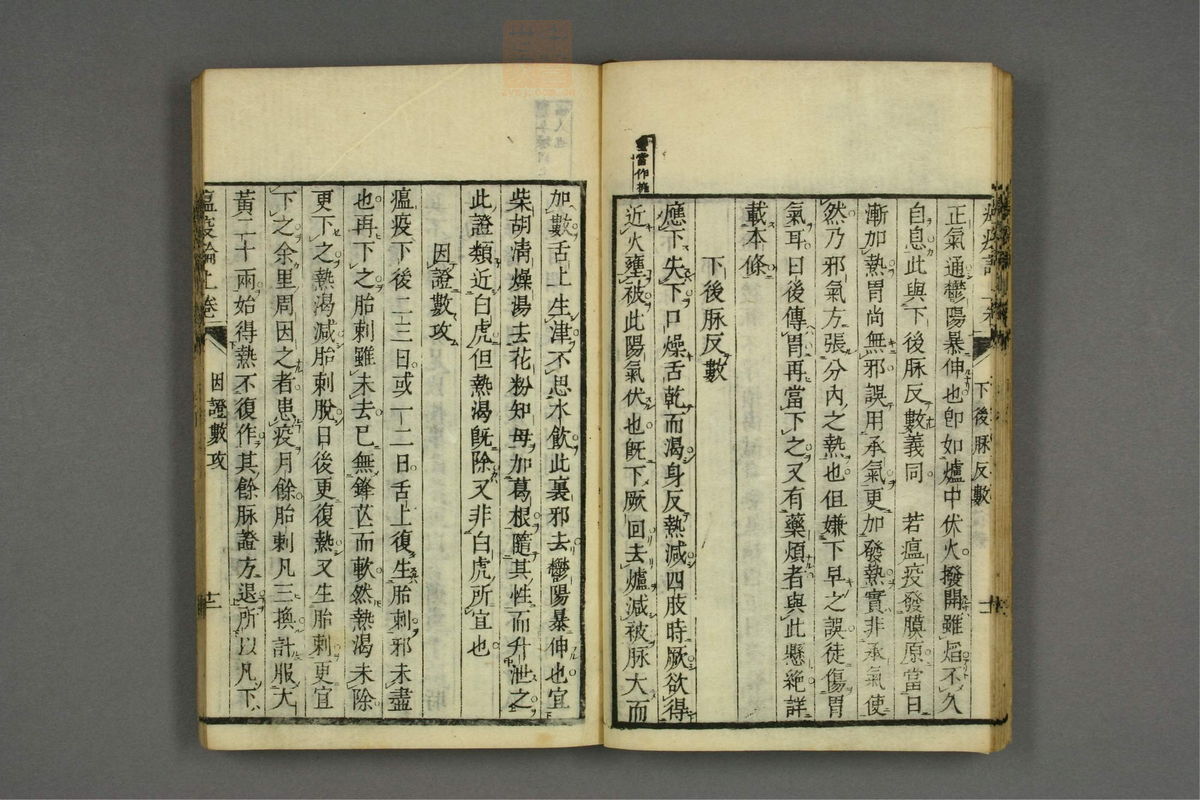 下後脉反數
正氣通鬱陽暴伸也卽如爐中伏火撥開雖焰不久
自息此與下後脉反數義同 若瘟疫發膜原當日
漸加熱胃尚無邪誤用承氣更加發熱實非承氣使
然乃邪氣方張分內之熱也但嫌下早之誤徒傷胃
氣耳日後傳胃再當下之又有藥煩者與此懸絶詳
載本條
下後脉反數
應下失下口燥舌乾而渴身反熱減四肢時厥欲得
近火壅被此陽氣伏也旣下厥回去爐減被脉大而
當作擁
加數舌上生津不思水飲此裏邪去鬱陽暴伸也宜
柴胡淸燥湯去花粉知母加葛根隨其性而升泄之
此證類近白虎但熱渴旣除又非白虎所宜也
因證數攻
瘟疫下後二三日或一二日舌上復生胎刺邪未盡
也再下之胎刺雖未去已無鋒芒而軟然熱渴未除
更下之熱渴減胎刺脫日後更復熱又生胎刺更宜
下之余里周因之者患疫月餘胎刺凡三換計服大
黃二十兩始得熱不復作其餘脉證方退所以凡下
瘟疫論上卷
因證數攻
十二